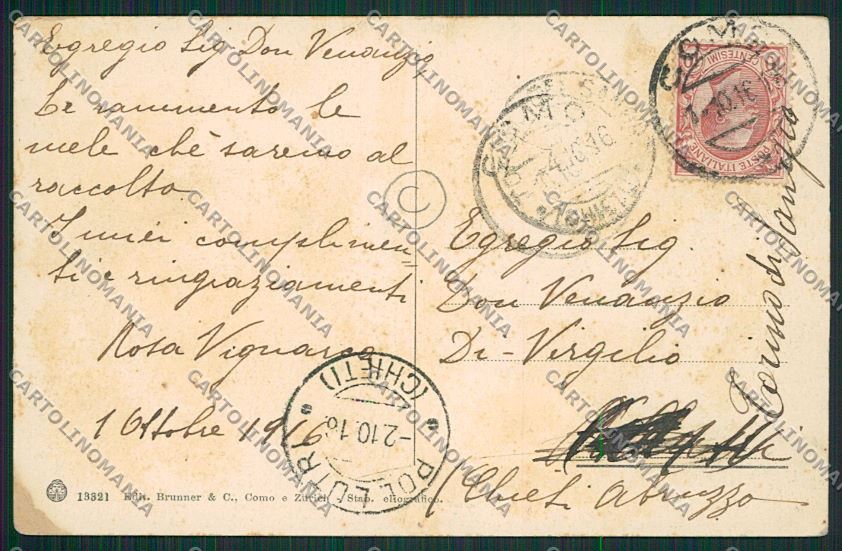 Egregio Sig Don Venanzio
Le rammento le
mele chè saremo al
raccolto.
I miei complimen
ti e ringraziamenti
Rosa
1 Ottobre 1916
Egregio Sig.
Don Venanzio
Di-Virgilio
(Chieti Abruzzo
Torino di Sangro
POSTE ITALIANE
CENTESIMI
1.10.16
4.10.16
(CHIETI)
-2.10.16
POLLUTRI
13321 Edit. Brunner & C., Como e Zürich - Stab. eliografico.
CARTOLINOMANIA